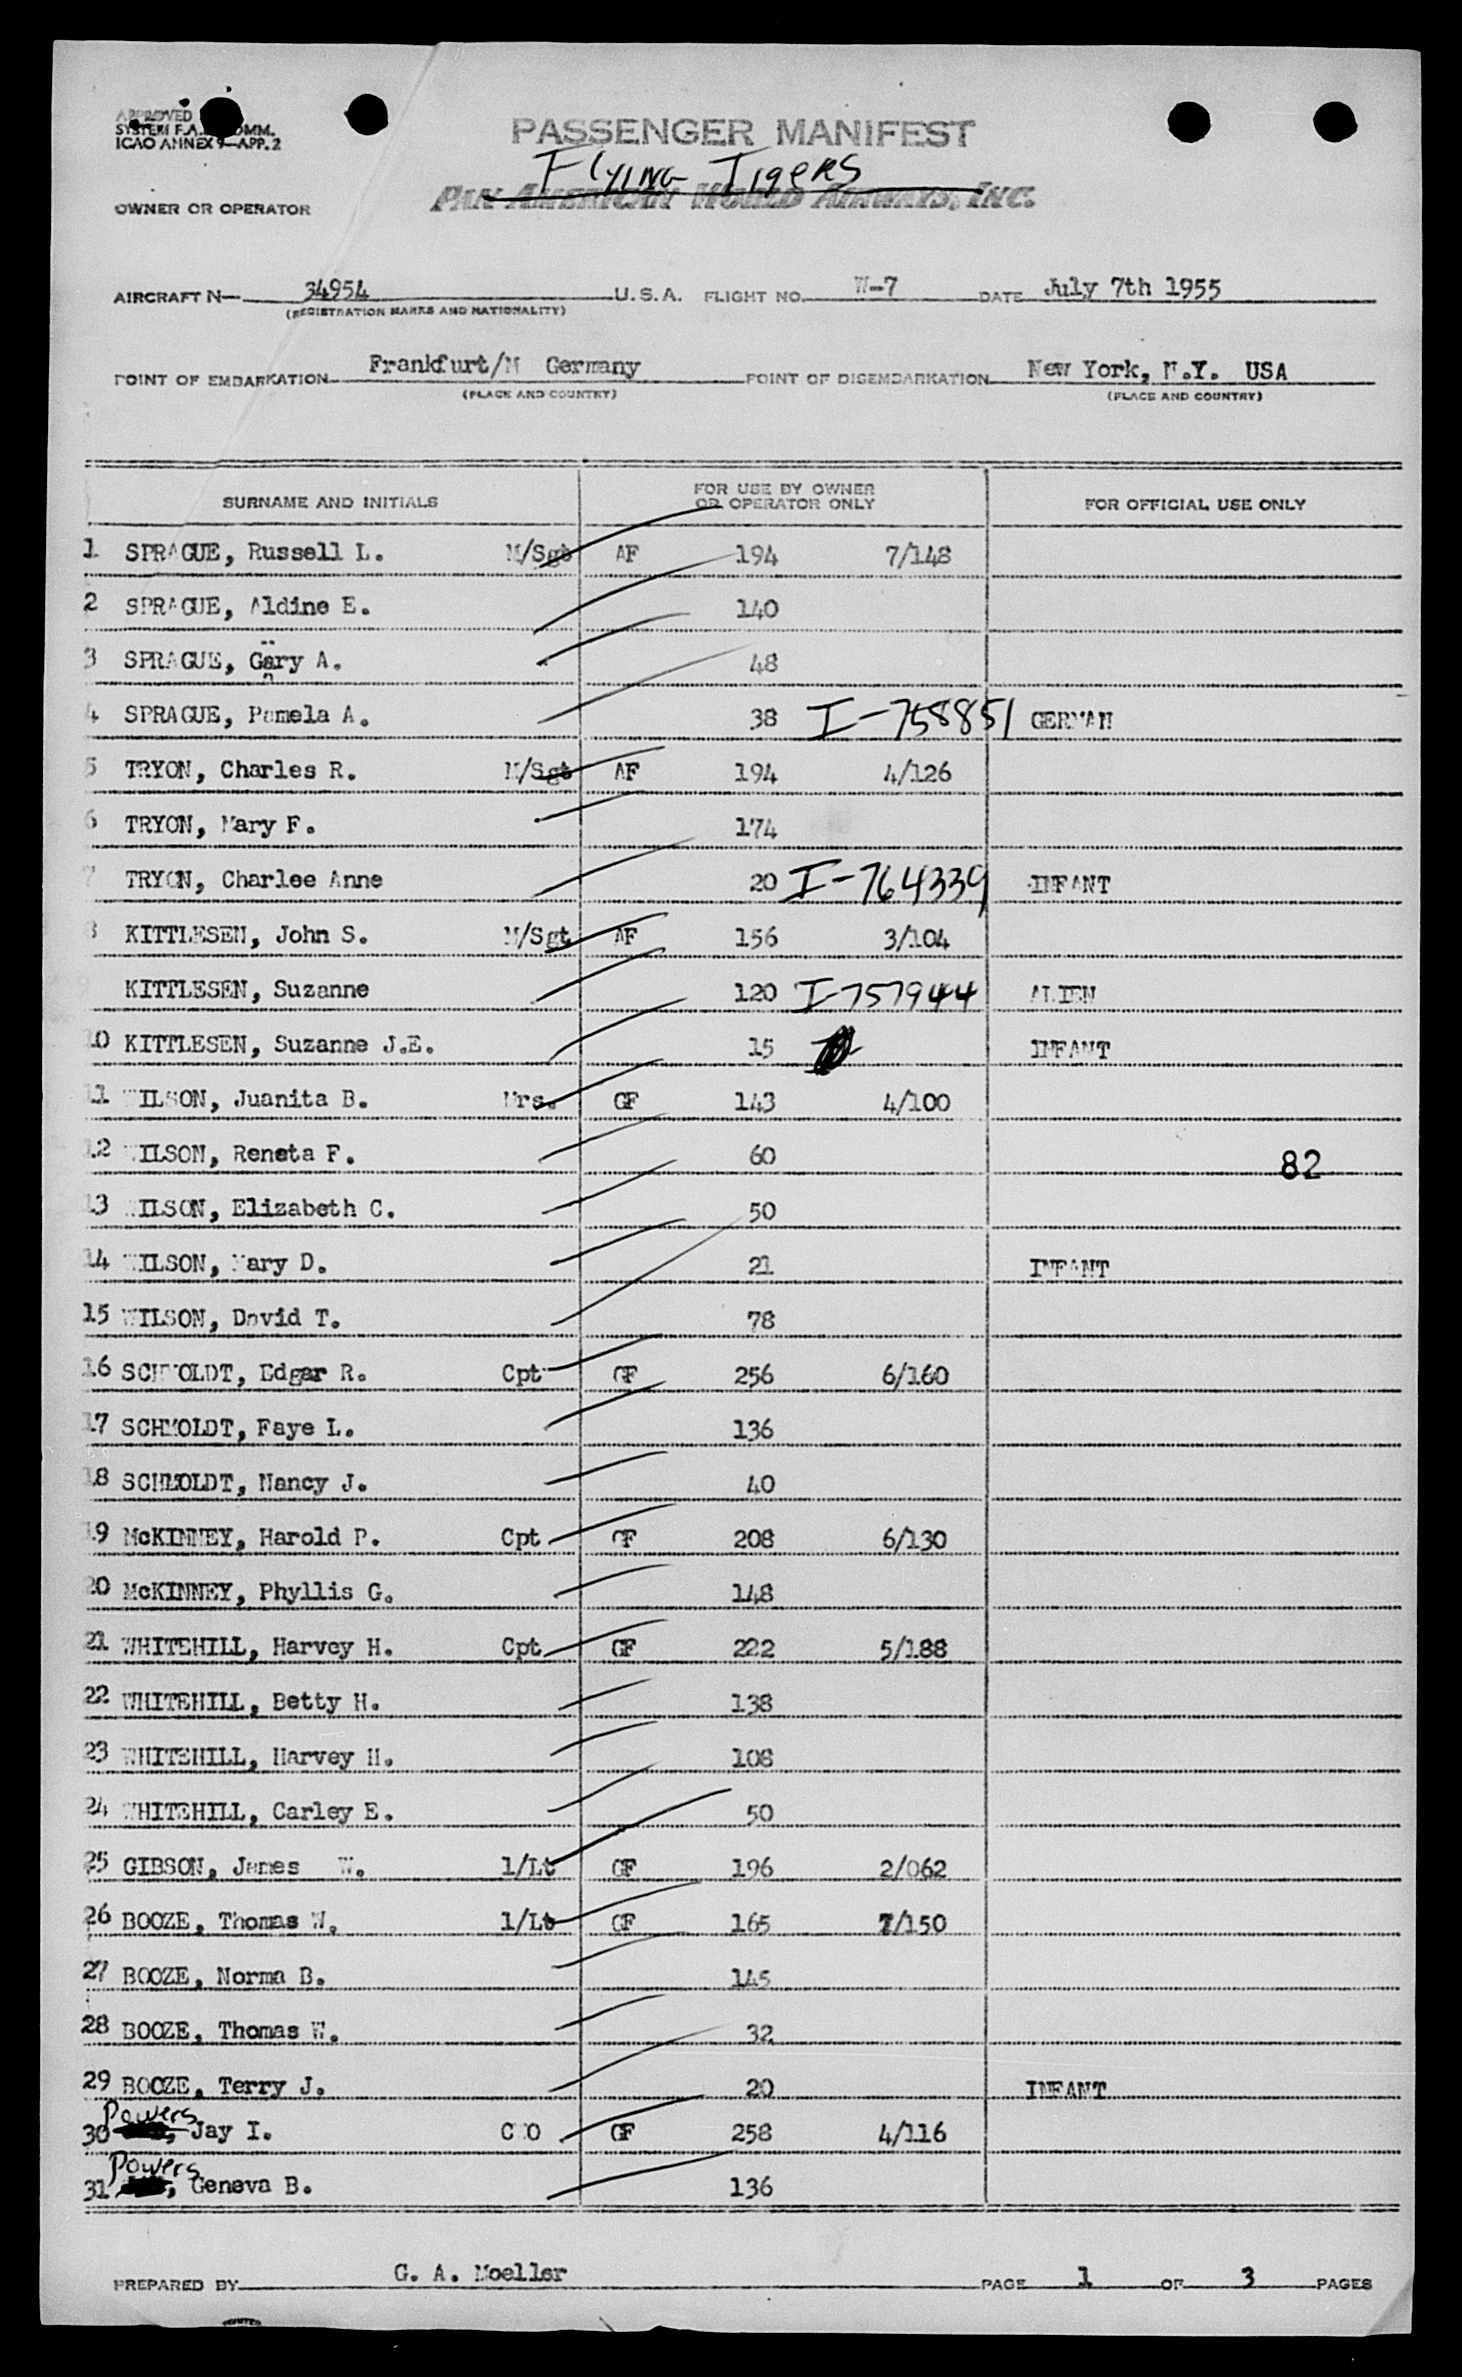 APPROVED
SYSTEM F.A. COMM.
ICAO ANNEX 9—APP. 2
PASSENGER MANIFEST
Flying Tigers
OWNER OR OPERATOR PAN AMERICAN WORLD AIRWAYS, INC.
AIRCRAFT N— 34954 U.S.A. FLIGHT NO. W-7 DATE July 7th 1955
(REGISTRATION MARKS AND NATIONALITY)
POINT OF EMBARKATION Frankfurt/M Germany POINT OF DISEMBARKATION New York, N.Y. USA
(PLACE AND COUNTRY) (PLACE AND COUNTRY)
SURNAME AND INITIALS FOR USE BY OWNER OR OPERATOR ONLY FOR OFFICIAL USE ONLY
1 SPRAGUE, Russell L. M/Sgt AF 194 7/148
2 SPRAGUE, Aldine E. 140
3 SPRAGUE, Gary A. 48
4 SPRAGUE, Pamela A. 38 I-758851 GERMAN
5 TRYON, Charles R. M/Sgt AF 194 4/126
6 TRYON, Mary F. 174
7 TRYON, Charlee Anne 20 I-764339 INFANT
8 KITTLESEN, John S. M/Sgt AF 156 3/104
KITTLESEN, Suzanne 120 I-757944 ALIEN
10 KITTLESEN, Suzanne J.E. 15 INFANT
11 WILSON, Juanita B. Mrs. GF 143 4/100
12 WILSON, Reneta F. 60 82
13 WILSON, Elizabeth C. 50
14 WILSON, Mary D. 21 INFANT
15 WILSON, David T. 78
16 SCHMOLDT, Edgar R. Cpt GF 256 6/160
17 SCHMOLDT, Faye L. 136
18 SCHMOLDT, Nancy J. 40
19 McKINNEY, Harold P. Cpt GF 208 6/130
20 McKINNEY, Phyllis G. 148
21 WHITEHILL, Harvey H. Cpt GF 222 5/188
22 WHITEHILL, Betty H. 138
23 WHITEHILL, Harvey H. 108
24 WHITEHILL, Carley E. 50
25 GIBSON, James W. 1/Lt GF 196 2/062
26 BOOZE, Thomas W. 1/Lt GF 165 7/150
27 BOOZE, Norma B. 145
28 BOOZE, Thomas W. 32
29 BOOZE, Terry J. 20 INFANT
30 Powers, Jay I. CWO GF 258 4/116
31 Powers, Geneva B. 136
PREPARED BY G. A. Moeller PAGE 1 OF 3 PAGES